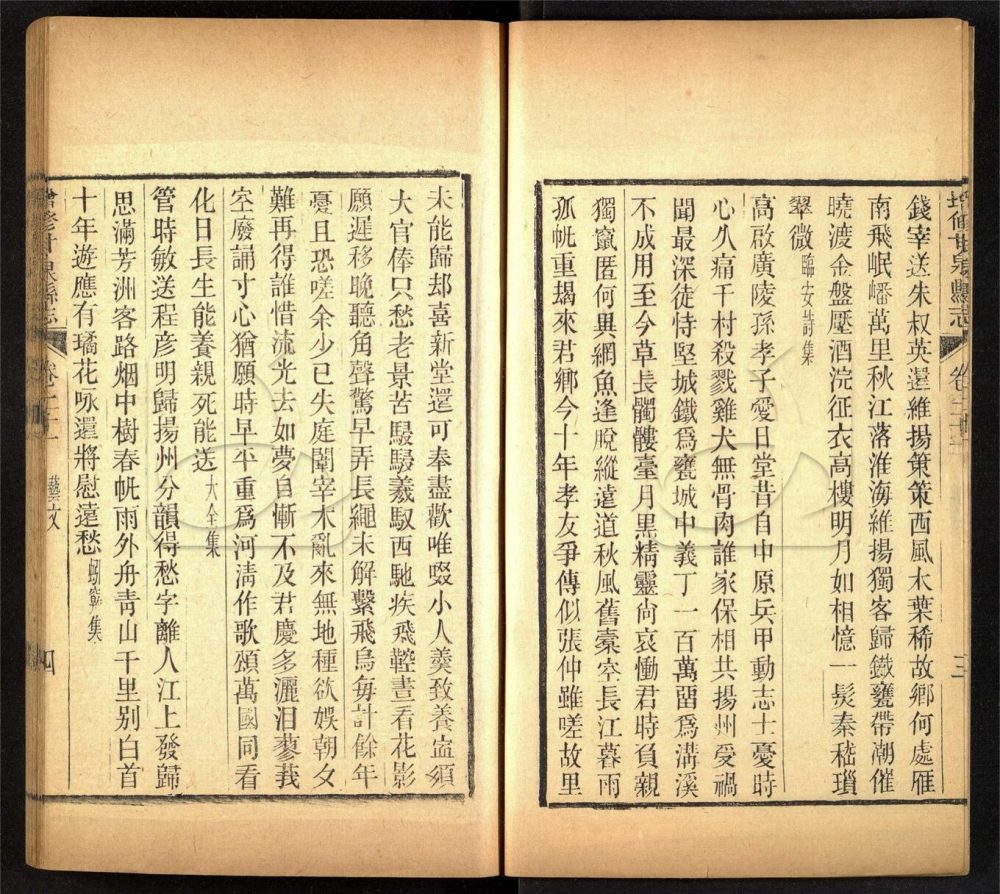 錢宰送朱叔英還維揚策策西風木葉稀故鄉何處雁
南飛岷嶓萬里秋江落淮海維揚獨客歸鐵甕帶潮催
曉渡金盤壓酒浣征衣高樓明月如相憶一髮秦嵇瑣
翠微臨安詩集
高啟廣陵孫孝子愛日堂昔自中原兵甲動志士憂時
心久痛千村殺戮雞犬無骨肉誰家保相共揚州受禍
聞最深徒恃堅城鐵為甕城中義丁一百萬畱為溝溪
不成用至今草長髑髏臺月黑精靈尙哀慟君時負親
獨竄匿何異網魚逢脫縱遠道秋風舊橐空長江暮雨
孤帆重朅來君鄉今十年孝友爭傳似張仲雖嗟故里
未能歸却喜新堂還可奉盡歡唯啜小人羹致養寍須
大官俸只愁老景苦駸駸羲馭西馳疾飛鞚晝看花影
願遲移晚聽角聲驚早弄長繩未解繫飛烏每計餘年
憂且恐嗟余少已失庭闈宰木亂來無地種欲娛朝夕
難再得誰惜流光去如夢自慚不及君慶多灑泪蓼莪
空廢誦寸心猶願時早平重為河淸作歌頌萬國同看
化日長生能養親死能送大全集
管時敏送程彥明歸揚州分韻得愁字離人江上發歸
思滿芳洲客路烟中樹春帆雨外舟靑山千里别白首
十年遊應有璚花咏還將慰遠愁蚓竅集
增修甘泉縣志
卷二十
藝文
四